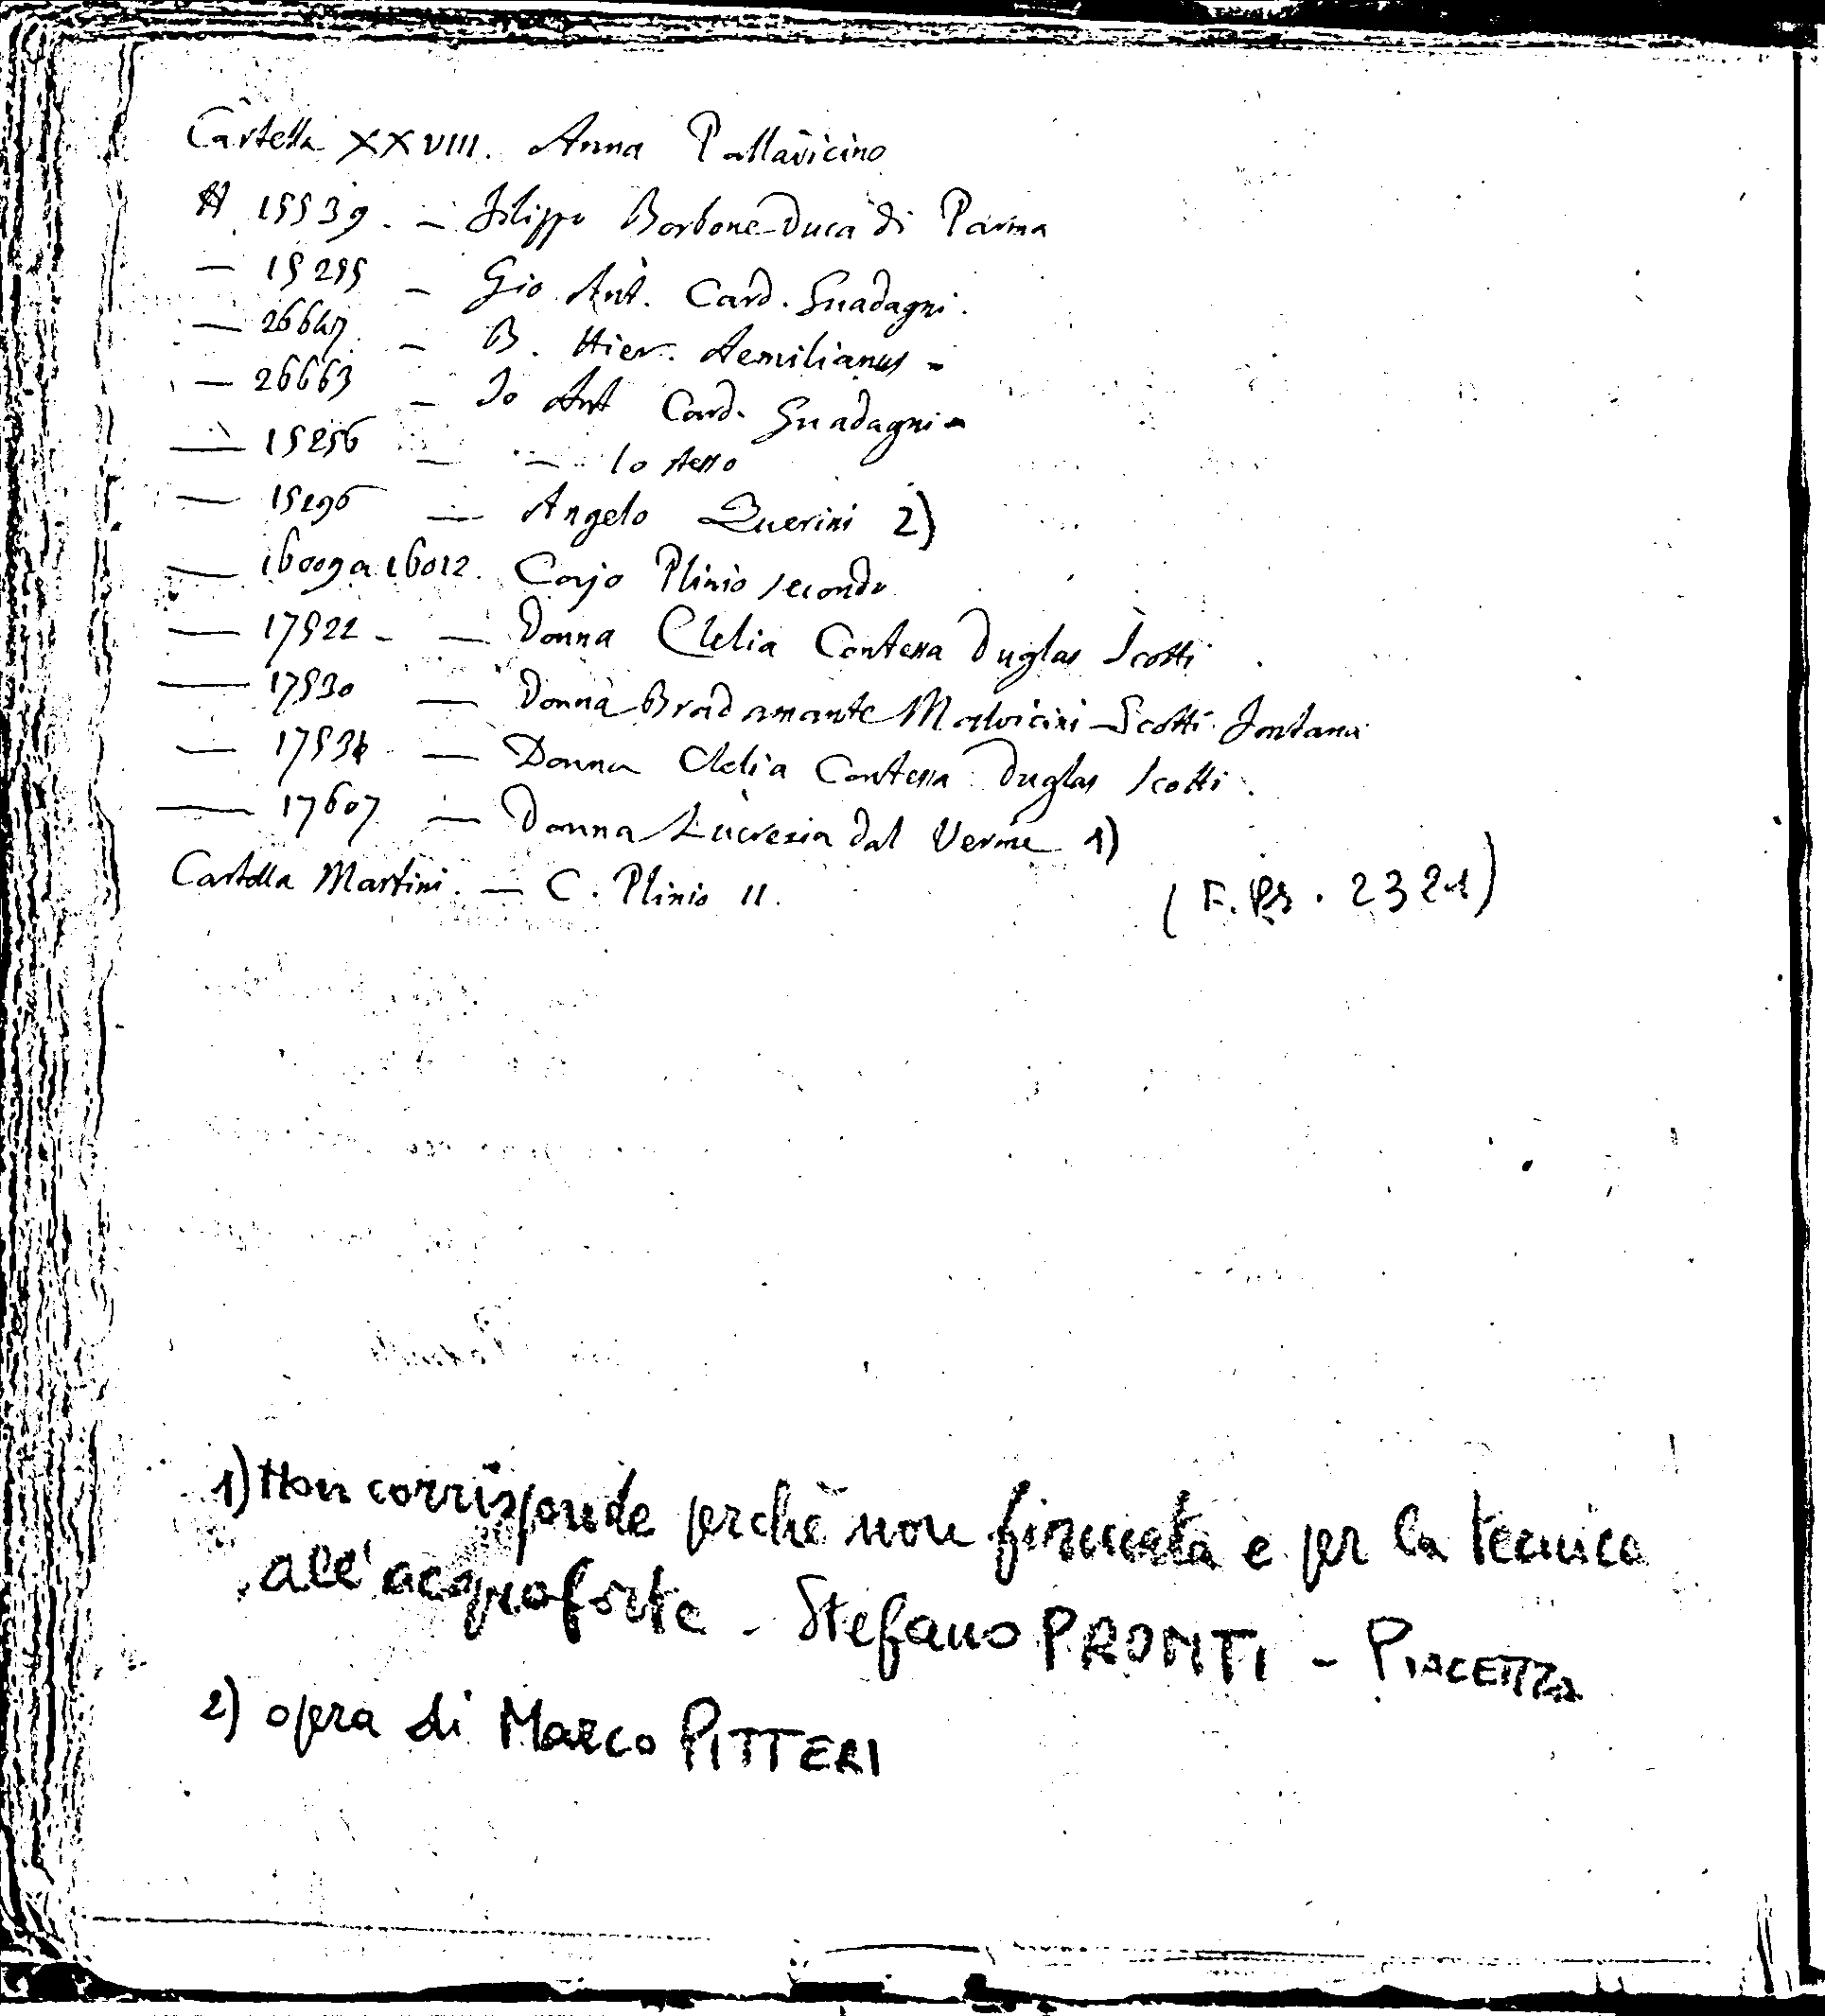 Cartella XXVIII. Anna Pallavicino
A 15539. — Filippo Borbone Duca di Parma
— 15255 — Gio Ant. Card. Guadagni.
— 26647 — B. Hier. Aemilianus -
— 26663 — Jo Ant Card. Guadagni -
— 15256 — — lo stesso
— 15296 — Angelo Querini 2)
— 16009 a 16012. Cajo Plinio secondo
— 17522 - — Donna Clelia Contessa Duglas Scotti.
— 17530 — Donna Bradamante Malvicini-Scotti Fontana
— 17534 — Donna Clelia Contessa Duglas Scotti.
— 17607 — Donna Lucrezia dal Verme 1)
Cartella Martini. — C. Plinio II.
(F. Ps. 2321)
1) Non corrisponde perchè non firmata e per la tecnica
all'acquaforte - Stefano PRONTI - PIACENZA
2) opera di Marco PITTERI